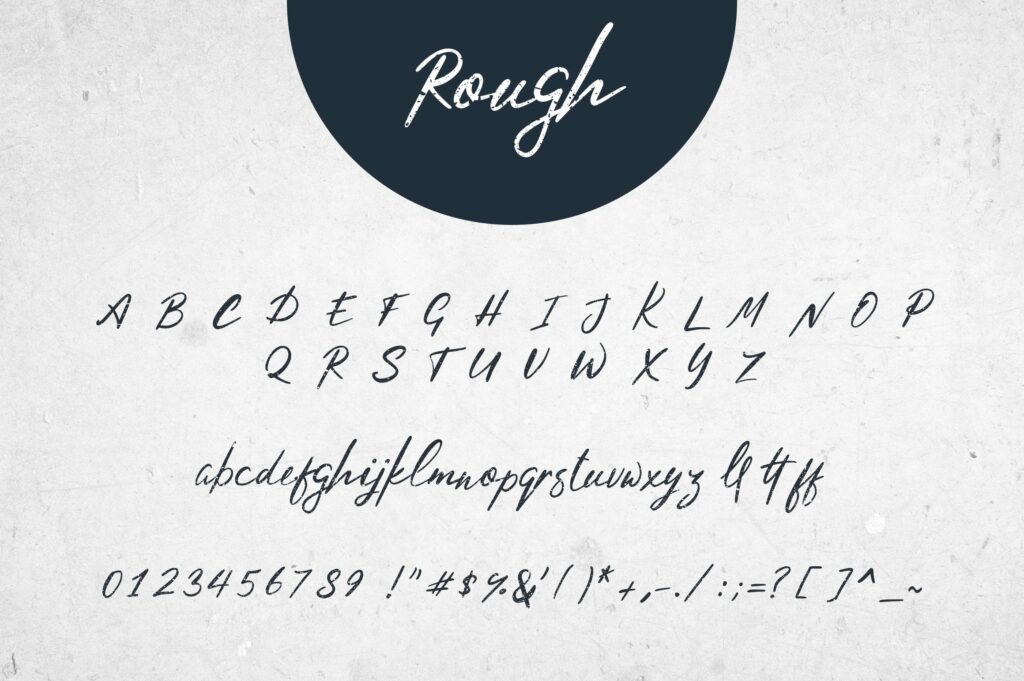 Rough
A B C D E F G H I J K L M N O P
Q R S T U V W X Y Z
abcdefghijklmnopqrstuvwxyz ll tt ff
0123456789 !"#$%&'()*+,-./:;=?[]^_~